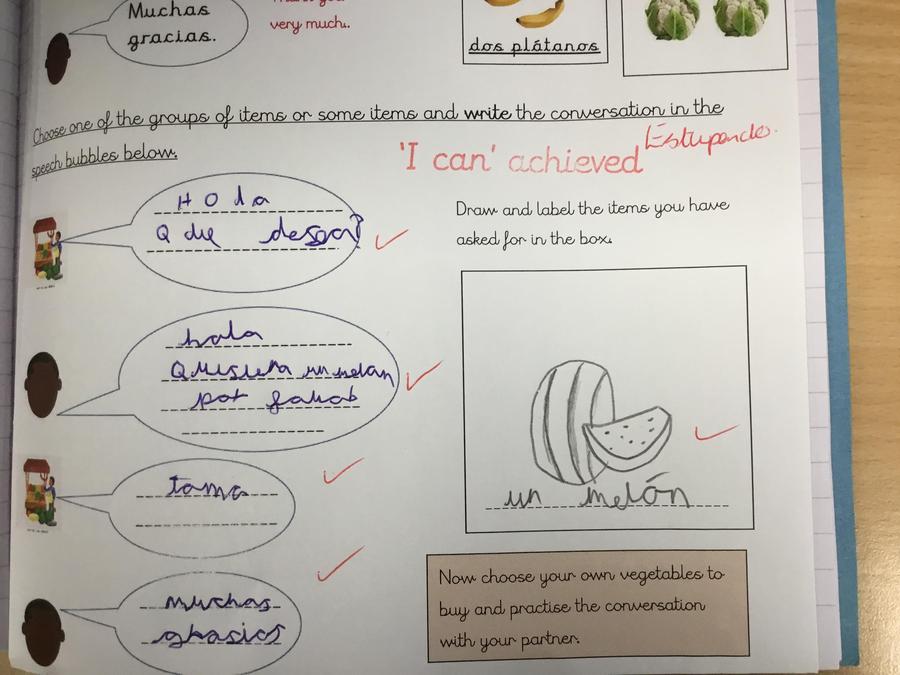 Muchas
gracias.
very much.
dos plátanos
Choose one of the groups of items or some items and write the conversation in the
speech bubbles below.
'I can' achieved Estupendo.
Hola
Que desea?
Draw and label the items you have
asked for in the box.
hola
Quisiera un melon
por favor
toma
un melón
muchas
ghasias
Now choose your own vegetables to
buy and practise the conversation
with your partner.